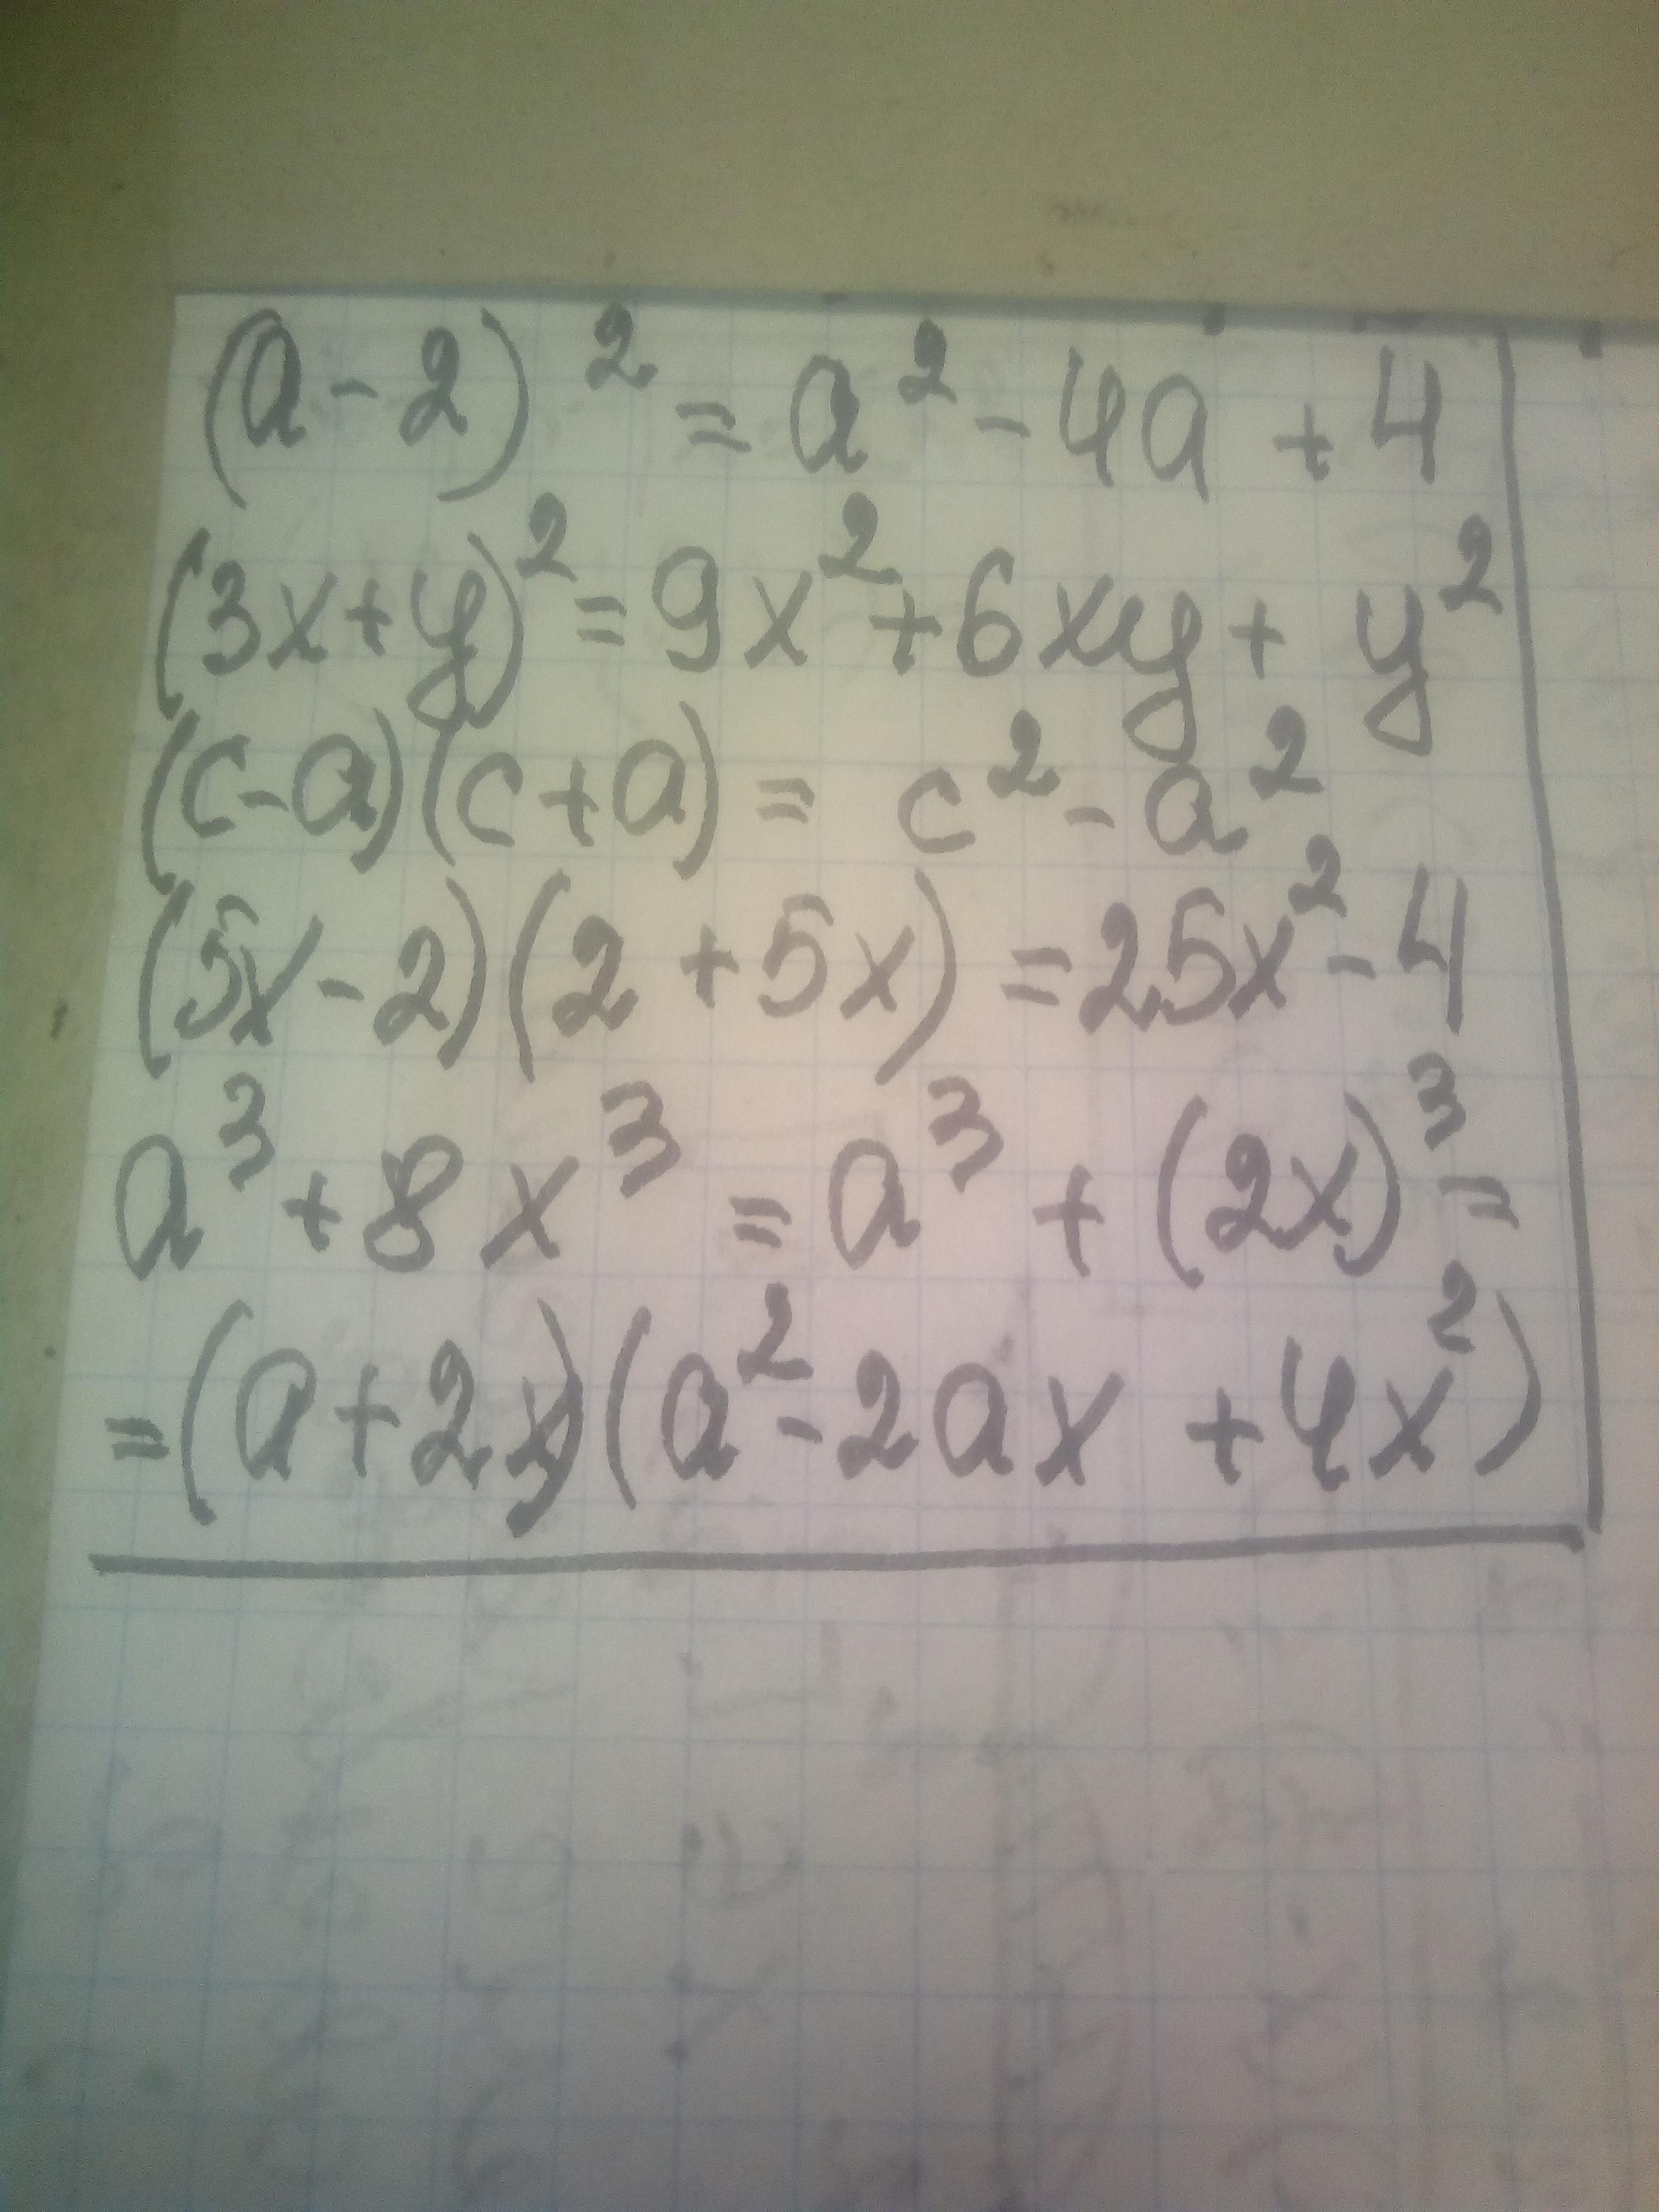 (a-2)² = a² - 4a + 4
(3x+y)² = 9x² + 6xy + y²
(c-a)(c+a) = c² - a²
(5x-2)(2+5x) = 25x² - 4
a³ + 8x³ = a³ + (2x)³ =
= (a+2x)(a² - 2ax + 4x²)